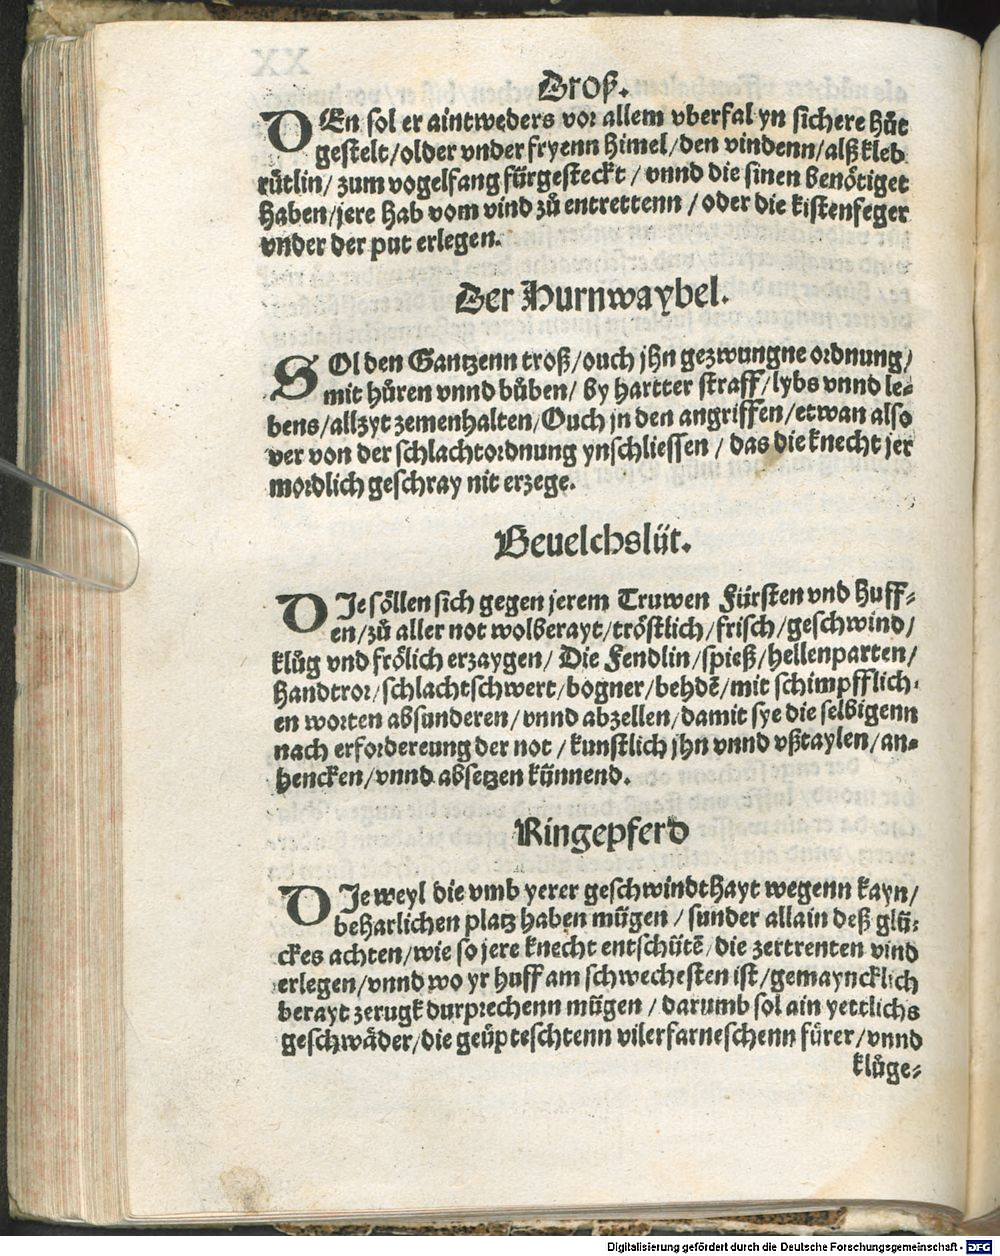 Troß.
DEn sol er aintweders vor allem vberfal yn sichere hůt
gestelt/older vnder fryenn himel/den vindenn/alß kleb
růtlin/zum vogelfang fürgesteckt/vnnd die sinen benötiget
haben/jere hab vom vind zů entrettenn/oder die kistenfeger
vnder der put erlegen.
Der Hurnwaybel.
SOl den Gantzenn troß/ouch jhn gezwungne ordnung/
mit hůren vnnd bůben/by hartter straff/lybs vnnd le⸗
bens/allzyt zemenhalten/Ouch jn den angriffen/etwan also
ver von der schlachtordnung ynschliessen/das die knecht jer
mordlich geschray nit erzege.
Beuelchslüt.
DJe söllen sich gegen jerem Truwen Fürsten vnd huff⸗
en/zů aller not wolberayt/tröstlich/frisch/geschwind/
klůg vnd frölich erzaygen/Die Fendlin/spieß/hellenparten/
handtror/schlachtschwert/bogner/behdē/mit schimpfflich⸗
en worten absunderen/vnnd abzellen/damit sye die selbigenn
nach erfordereung der not/kunstlich jhn vnnd vßtaylen/an⸗
hencken/vnnd absetzen künnend.
Ringepferd
DJe weyl die vmb yerer geschwindthayt wegenn kayn/
beharlichen platz haben mügen/sunder allain deß glü⸗
ckes achten/wie so jere knecht entschütē/die zertrenten vind
erlegen/vnnd wo yr huff am schwechesten ist/gemayncklich
berayt zerugk durprechenn mügen/darumb sol ain yettlichs
geschwäder/die geüpteschtenn vilerfarneschenn fürer/vnnd
klůge⸗
Digitalisierung gefördert durch die Deutsche Forschungsgemeinschaft - DFG